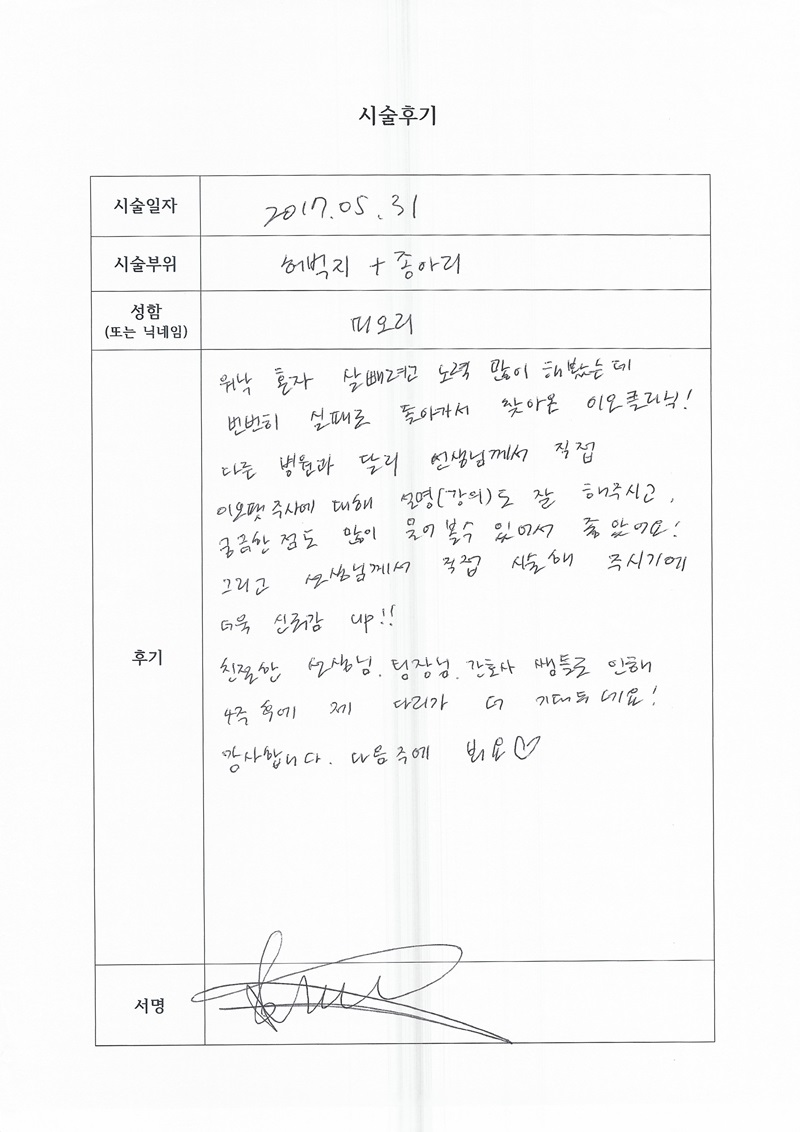 시술후기
시술일자 2017.05.31
시술부위 허벅지 + 종아리
성함
(또는 닉네임) 미오리
후기
워낙 혼자 살빼려고 노력 많이 해봤는데
번번히 실패로 돌아가서 찾아온 이오클리닉!
다른 병원과 달리 선생님께서 직접
이오팻주사에 대해 설명(강의)도 잘 해주시고,
궁금한 점도 많이 물어볼수 있어서 좋았어요!
그리고 선생님께서 직접 시술해 주시기에
더욱 신뢰감 up!!
친절한 선생님, 팀장님, 간호사 쌤들로 인해
4주 후에 제 다리가 더 기대되네요!
감사합니다. 다음주에 봐요♡
서명